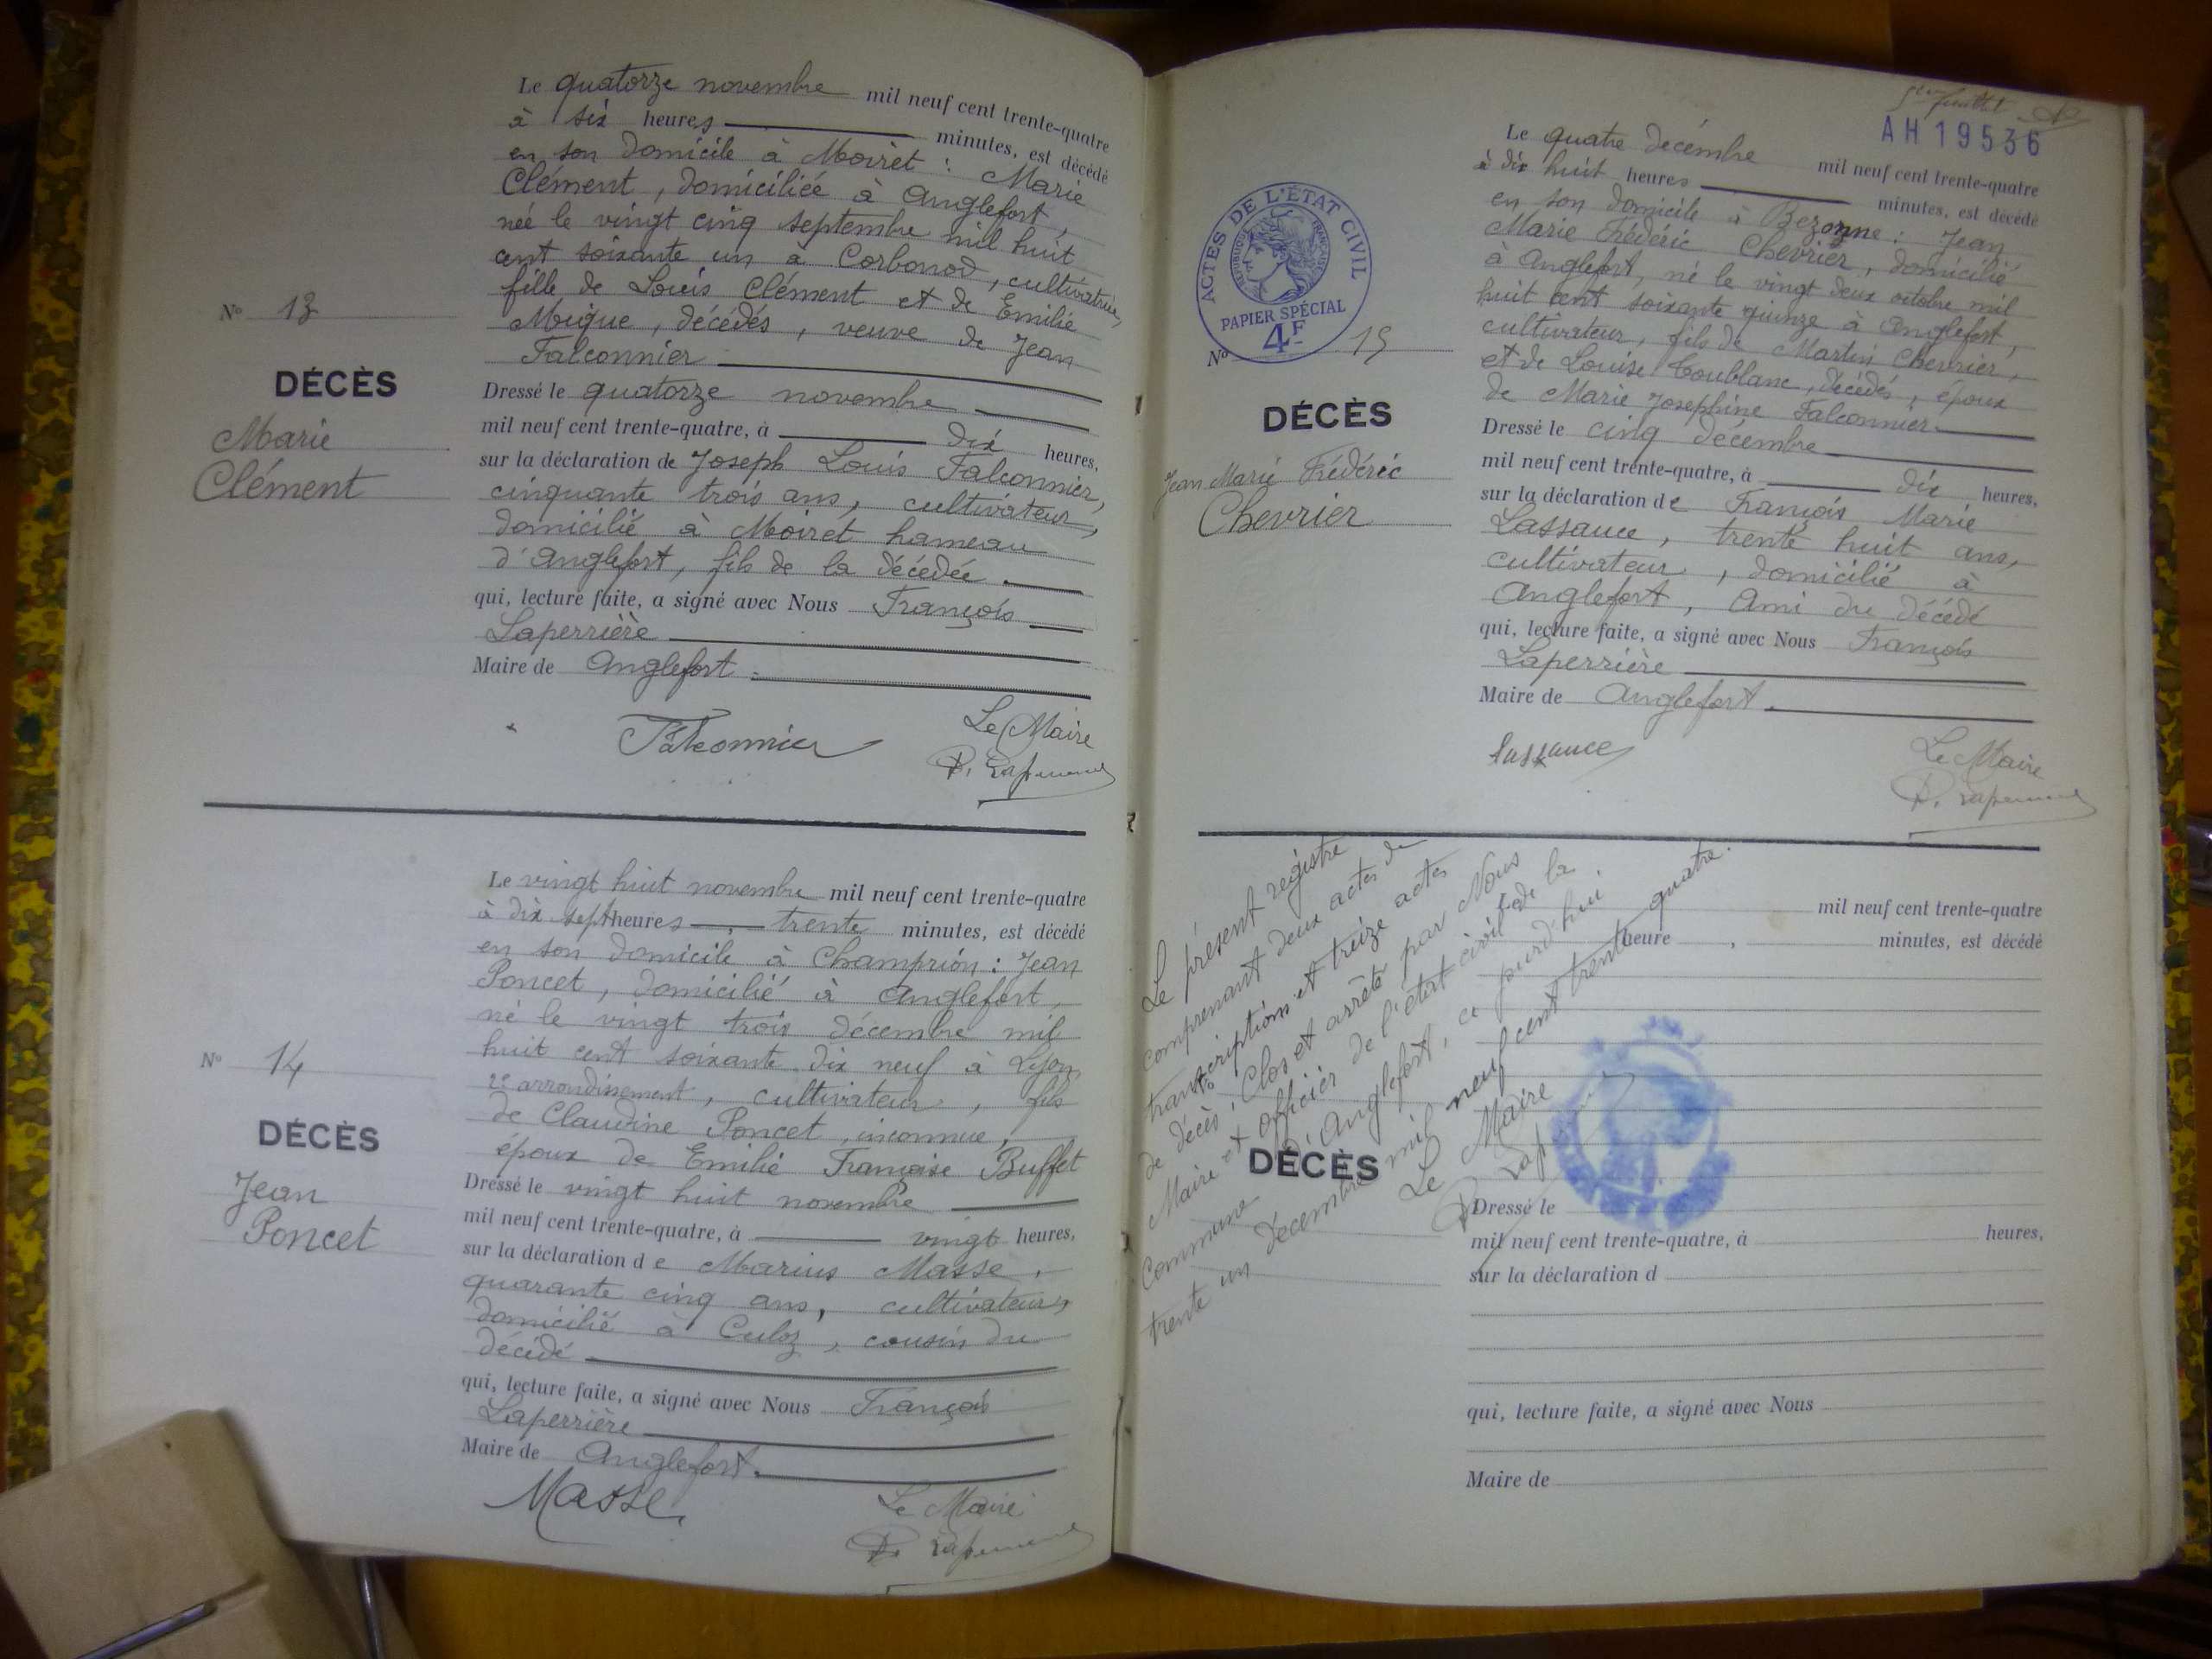 Le quatorze novembre mil neuf cent trente-quatre
à six heures minutes, est décédé
en son domicile à Moiret : Marie
Clément, domiciliée à Anglefort,
née le vingt cinq septembre mil huit
cent soixante un à Corbonod, cultivatrice,
fille de Louis Clément et de Emilie
Mique, décédés, veuve de Jean
Falconnier
N° 13
DÉCÈS
Marie
Clément
Dressé le quatorze novembre
mil neuf cent trente-quatre, à dix heures,
sur la déclaration de Joseph Louis Falconnier,
cinquante trois ans, cultivateur,
domicilié à Moiret hameau
d'Anglefort, fils de la décédée.
qui, lecture faite, a signé avec Nous François
Laperrière
Maire de Anglefort.
Falconnier Le Maire
Le vingt huit novembre mil neuf cent trente-quatre
à dix sept heures, trente minutes, est décédé
en son domicile à Champrion : Jean
Poncet, domicilié à Anglefort,
né le vingt trois décembre mil
huit cent soixante dix neuf à Lyon
2e arrondissement, cultivateur, fils
de Claudine Poncet, inconnue,
époux de Emilie Françoise Buffet
N° 14
DÉCÈS
Jean
Poncet
Dressé le vingt huit novembre
mil neuf cent trente-quatre, à vingt heures,
sur la déclaration de Marius Masse,
quarante cinq ans, cultivateur,
domicilié à Culoz, cousin du
décédé
qui, lecture faite, a signé avec Nous François
Laperrière
Maire de Anglefort.
Masse Le Maire
feuillet
AH19536
ACTES DE L'ÉTAT CIVIL
RÉPUBLIQUE FRANÇAISE
PAPIER SPÉCIAL
4F
Le quatre décembre mil neuf cent trente-quatre
à dix huit heures minutes, est décédé
en son domicile à Bezonne : Jean
Marie Frédéric Chevrier, domicilié
à Anglefort, né le vingt deux octobre mil
huit cent soixante quinze à Anglefort,
cultivateur, fils de Martin Chevrier,
et de Louise Coublanc, décédés, époux
de Marie Josephine Falconnier.
N° 15
DÉCÈS
Jean Marie Frédéric
Chevrier
Dressé le cinq décembre
mil neuf cent trente-quatre, à dix heures,
sur la déclaration de François Marie
Lassauce, trente huit ans,
cultivateur, domicilié à
Anglefort, Ami du décédé
qui, lecture faite, a signé avec Nous François
Laperrière
Maire de Anglefort.
Lassauce Le Maire
Le présent registre
comprenant deux actes de
transcription et treize actes
de décès, Clos et arrêté par Nous
Maire et officier de l'état civil de la
Commune d'Anglefort, ce jourd'hui
trente un décembre mil neuf cent trente quatre.
Le Maire
mil neuf cent trente-quatre
heure , minutes, est décédé
DÉCÈS
Dressé le
mil neuf cent trente-quatre, à heures,
sur la déclaration d
qui, lecture faite, a signé avec Nous
Maire de